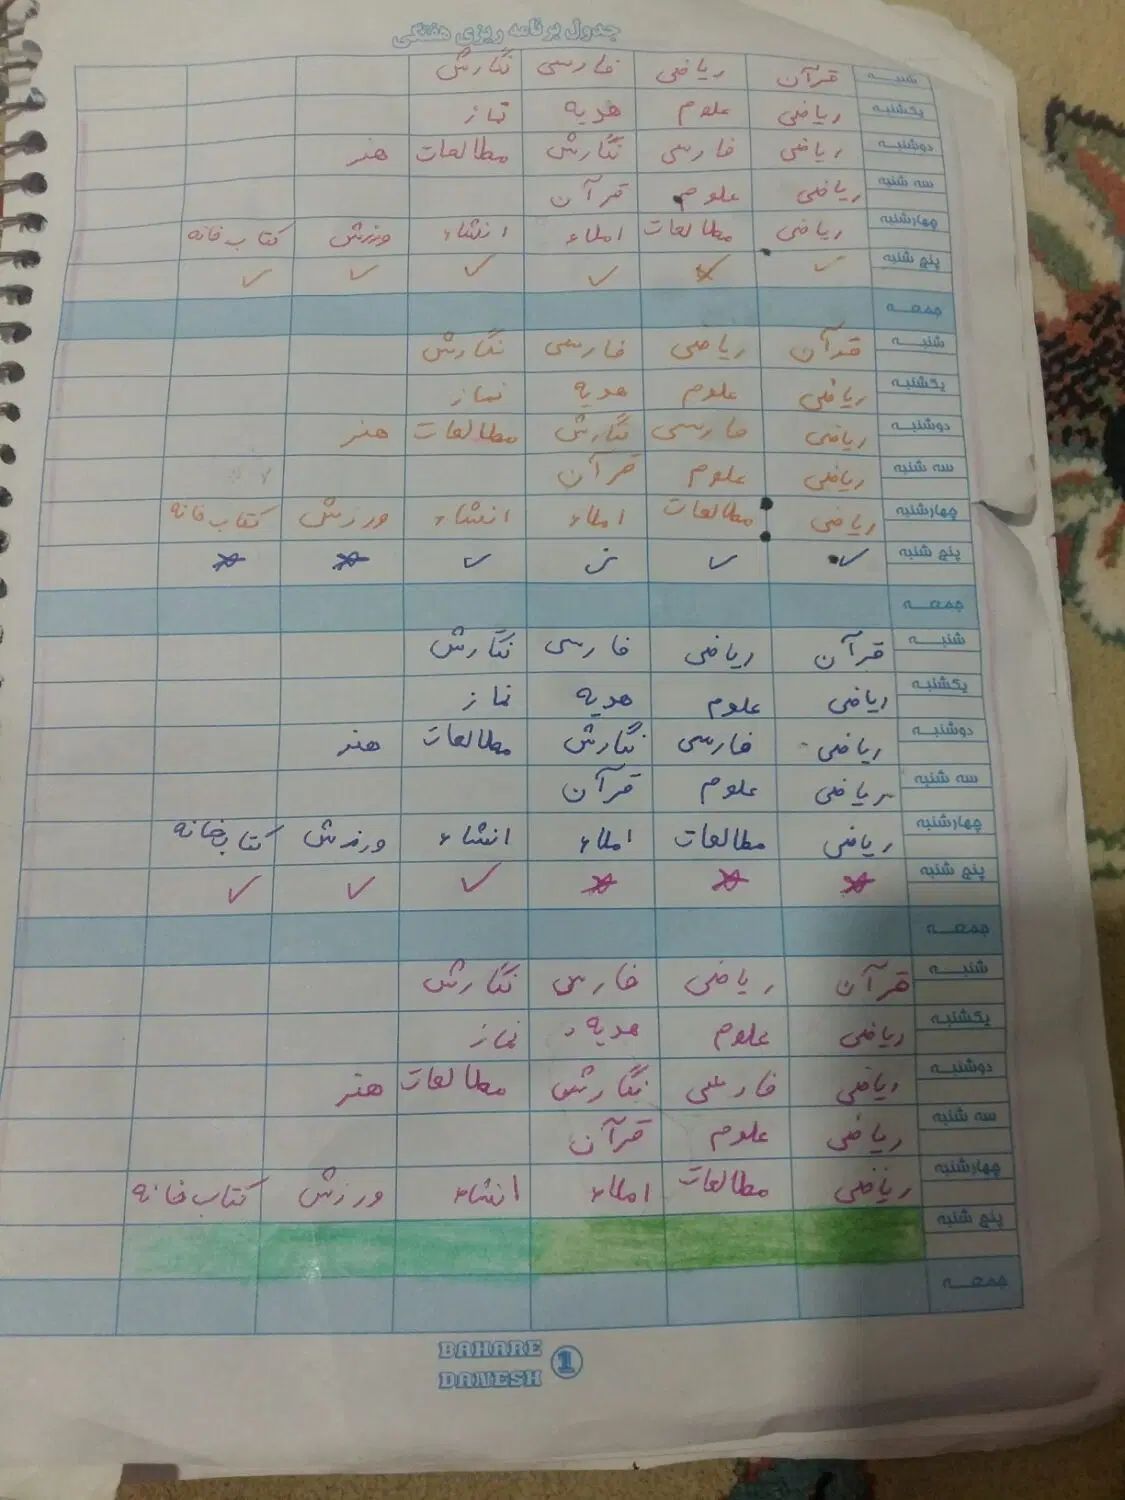 جدول برنامه ریزی هفتگی
شنبه قرآن ریاضی فارسی نگارش
یکشنبه ریاضی علوم هدیه نماز
دوشنبه ریاضی فارسی نگارش مطالعات هنر
سه شنبه ریاضی علوم قرآن
چهارشنبه ریاضی مطالعات املاء انشاء ورزش کتاب خانه
پنج شنبه ✓ ✓ ✓ ✓ ✓ ✓
جمعه
شنبه قرآن ریاضی فارسی نگارش
یکشنبه ریاضی علوم هدیه نماز
دوشنبه ریاضی فارسی نگارش مطالعات هنر
سه شنبه ریاضی علوم قرآن
چهارشنبه ریاضی مطالعات املاء انشاء ورزش کتاب خانه
پنج شنبه ✓ ✓ ✓
جمعه
شنبه قرآن ریاضی فارسی نگارش
یکشنبه ریاضی علوم هدیه نماز
دوشنبه ریاضی فارسی نگارش مطالعات هنر
سه شنبه ریاضی علوم قرآن
چهارشنبه ریاضی مطالعات املاء انشاء ورزش کتابخانه
پنج شنبه ✓ ✓ ✓
جمعه
شنبه قرآن ریاضی فارسی نگارش
یکشنبه ریاضی علوم هدیه نماز
دوشنبه ریاضی فارسی نگارش مطالعات هنر
سه شنبه ریاضی علوم قرآن
چهارشنبه ریاضی مطالعات املاء انشاء ورزش کتاب خانه
پنج شنبه
جمعه
BAHARE
DANESH
1